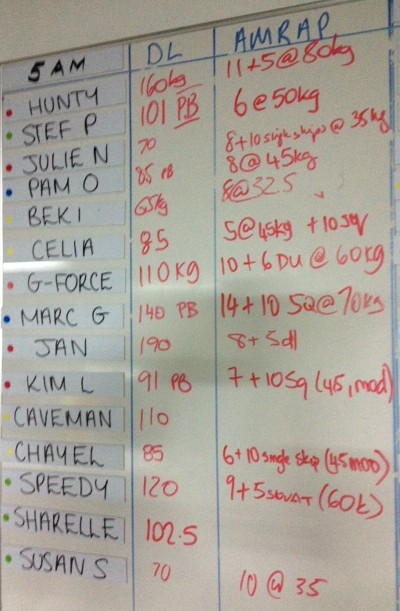 5 AM DL AMRAP
HUNTY 160kg 11+5@80kg
STEF P 101 PB 6@50kg
JULIE N 70 8+10 single skips @ 35kg
PAM O 85 PB 8@45kg
BEKI 65kg 8@32.5
CELIA 85 5@45kg +10 sq
G-FORCE 110KG 10+6 DU @ 60kg
MARC G 140 PB 14+10 SQ@70kg
JAN 190 8+5dl
KIM L 91 PB 7+10Sq (45, mod)
CAVEMAN 110
CHAYEL 85 6+10 single skip (45mod)
SPEEDY 120 9+5 (60k)
SHARELLE 102.5
SUSAN S 70 10 @ 35